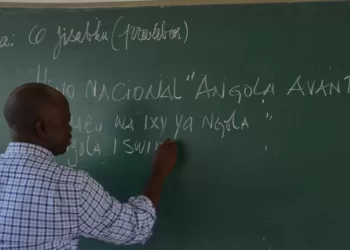 a: O Jisabhu (provérbios)
Hino NACIONAL "ANGOLA AVANT
WA IXY YA NGOLA"
gola I SWI